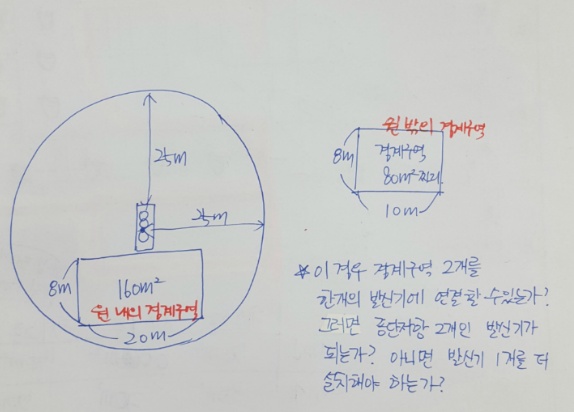 25m
25m
8m
160m²
원 내의 경계구역
20m
원 밖의 경계구역
8m
경계구역
80m²짜리
10m
* 이 경우 경계구역 2개를
한개의 발신기에 연결할 수 있는가?
그러면 종단저항 2개인 발신기가
되는가? 아니면 발신기 1개를 더
설치해야 하는가?